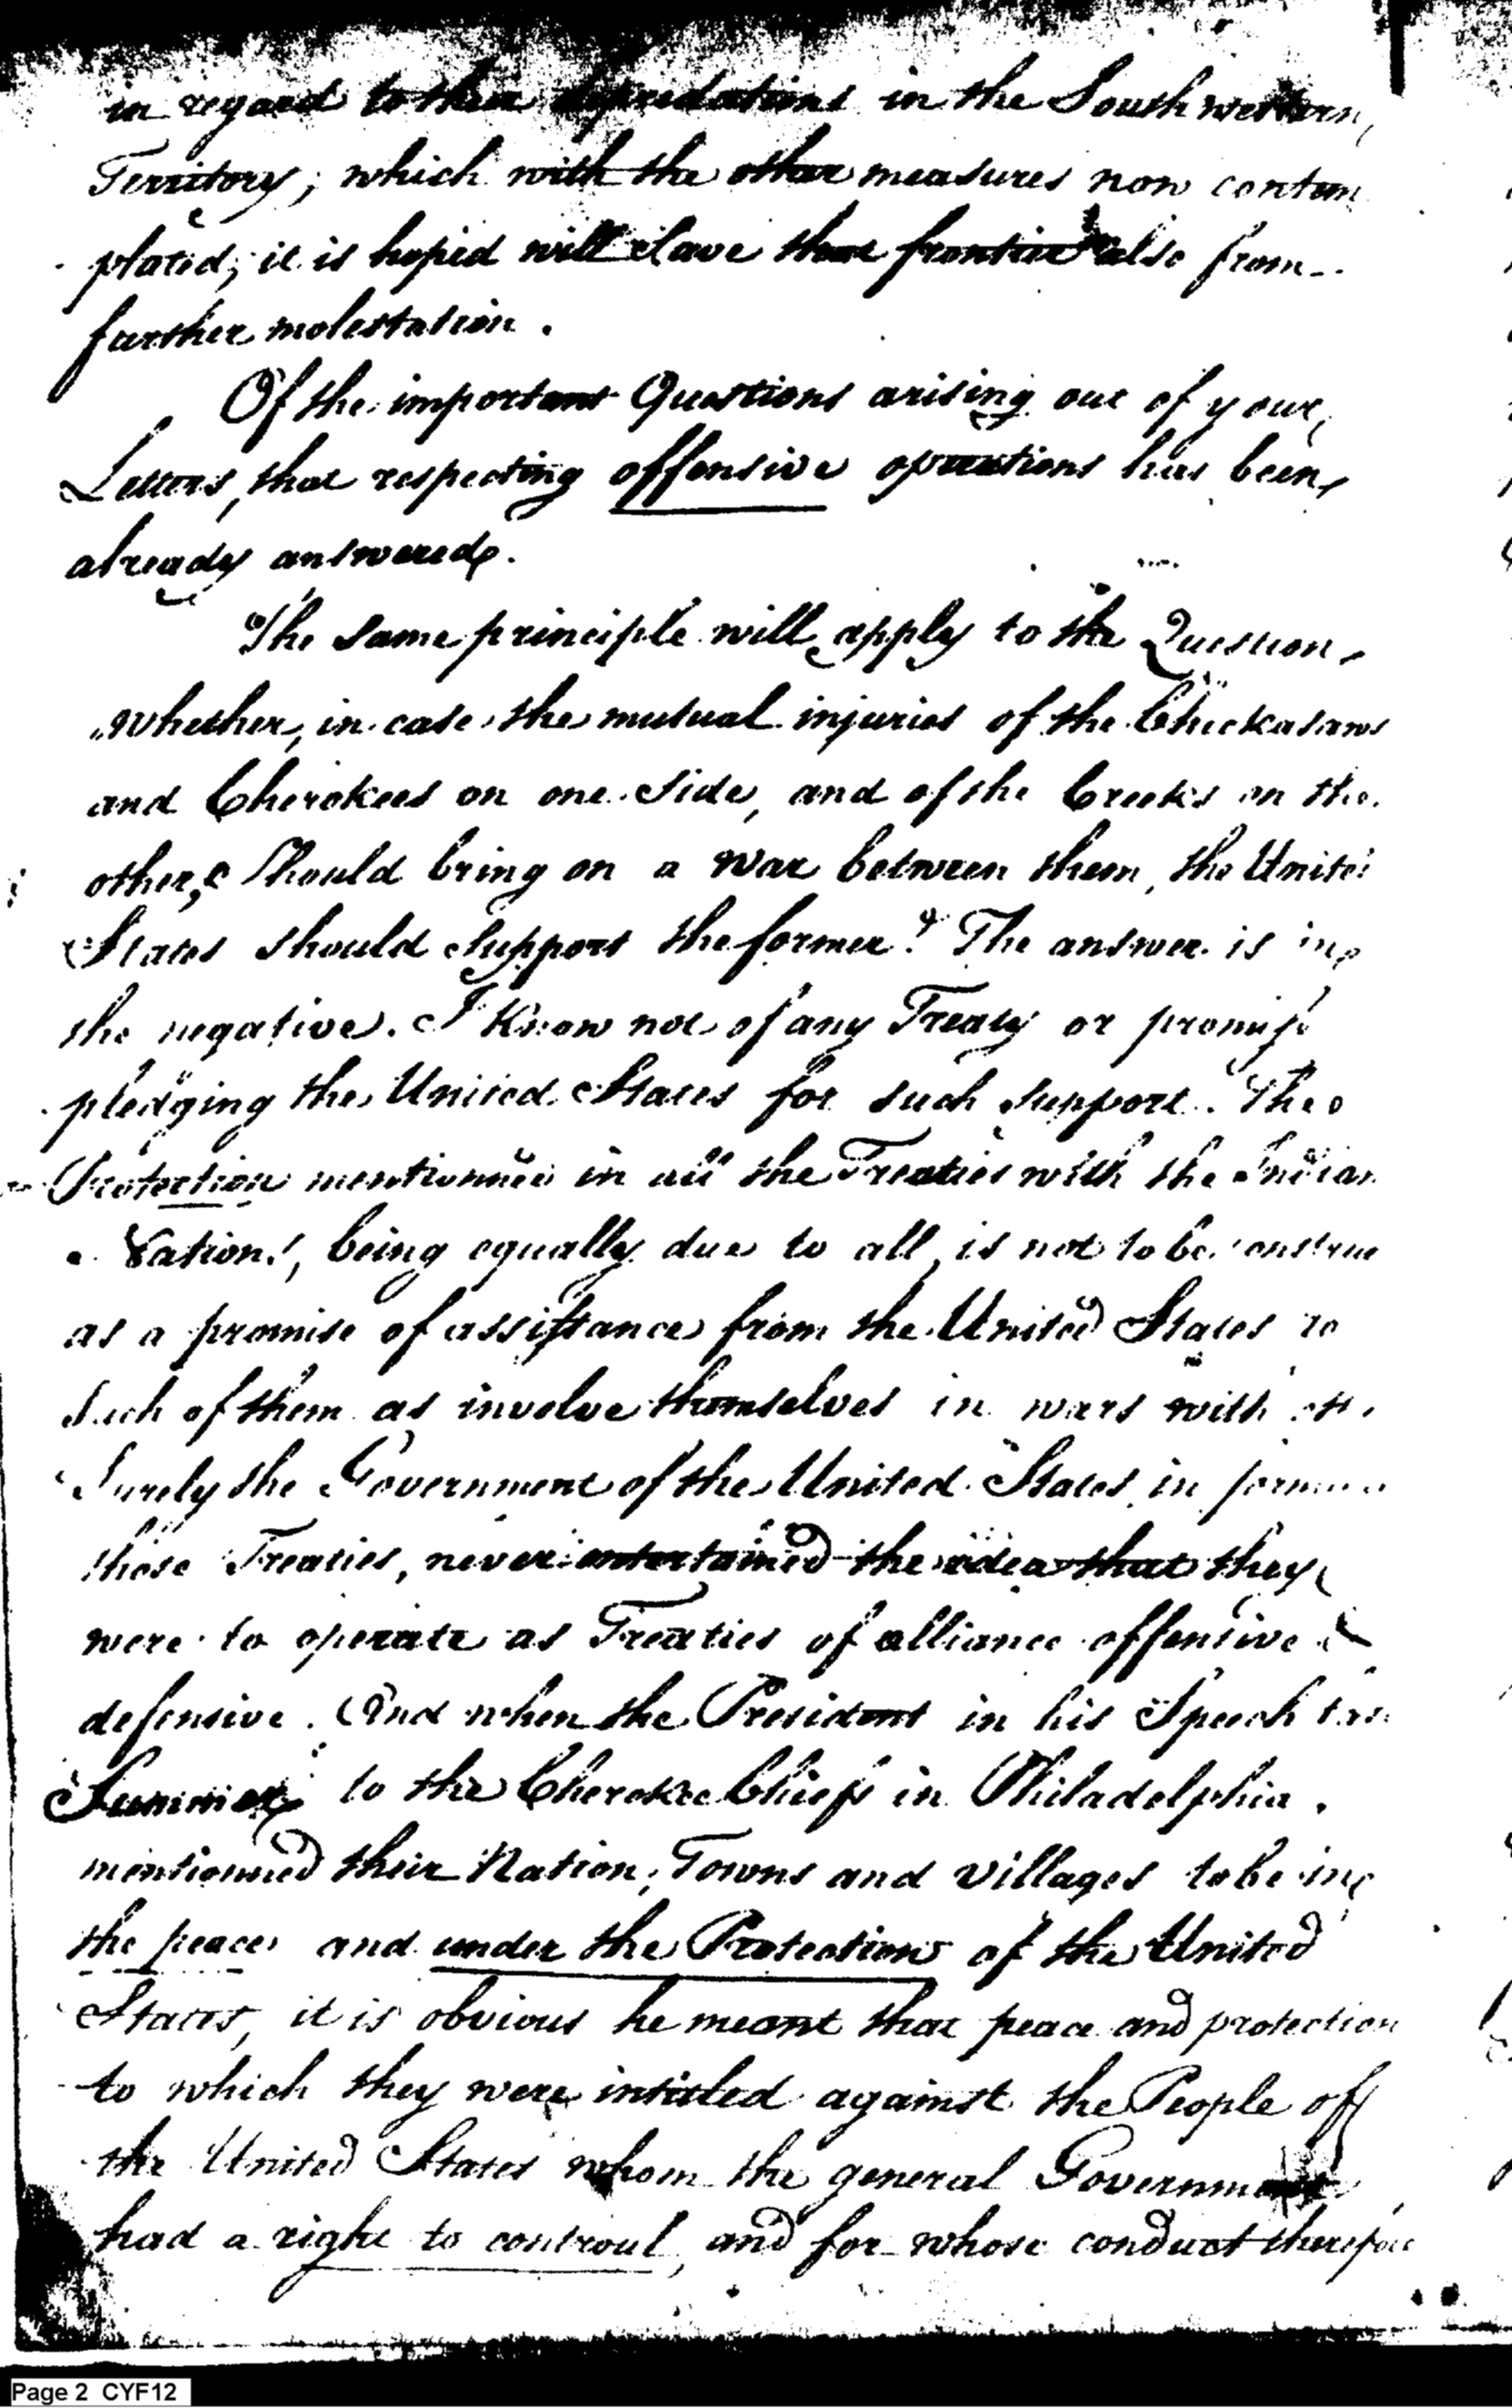 in regard to their depredations in the Southwestern
Territory; which with the other measures now contem
plated, it is hoped will save that frontier also from
further molestation.
Of the important Questions arising out of your
Letters, that respecting offensive operations has been
already answered.
The same principle will apply to the Question,
whether, in case the mutual injuries of the Chickasaws
and Cherokees on one side, and of the Creeks on the
other, should bring on a war between them, the United
States should support the former? The answer is in
the negative. I know not of any Treaty or promise
pledging the United States for such support. The
Protection mentionned in all the Treaties with the Indian
Nations, being equally due to all, is not to be construe
as a promise of assistance from the United States to
such of them as involve themselves in wars with
Surely the Government of the United States, in
those Treaties, never entertained the idea that they
were to operate as Treaties of alliance offensive &
defensive. And when the President in his Speech last
Summer to the Cherokee Chiefs in Philadelphia,
mentionned their Nation, Towns and Villages to be in
the peace and under the Protection of the United
States, it is obvious he meant that peace and protection
to which they were intitled against the People of
the United States whom the general Government
had a right to controul, and for whose conduct therefore
Page 2 CYF12